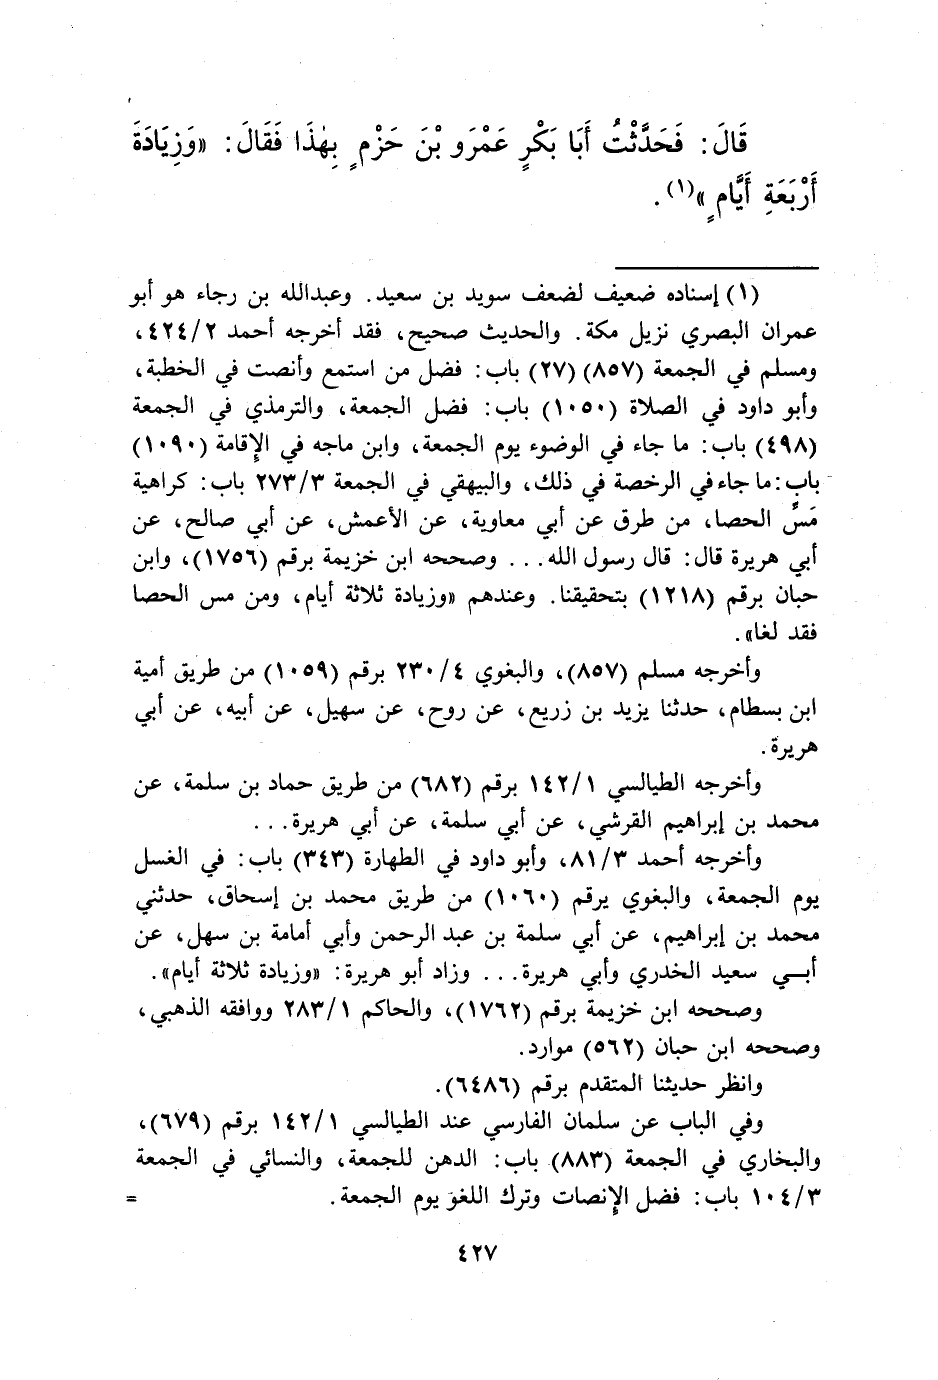 قَالَ: فَحَدَّثْتُ أَبَا بَكْرٍ عَمْرَو بْنَ حَزْمٍ بِهٰذَا فَقَالَ: «وَزِيَادَةَ
أَرْبَعَةِ أَيَّامٍ»(١).
(١) إسناده ضعيف لضعف سويد بن سعيد. وعبدالله بن رجاء هو أبو
عمران البصري نزيل مكة. والحديث صحيح، فقد أخرجه أحمد ٤٢٤/٢،
ومسلم في الجمعة (٨٥٧) (٢٧) باب: فضل من استمع وأنصت في الخطبة،
وأبو داود في الصلاة (١٠٥٠) باب: فضل الجمعة، والترمذي في الجمعة
(٤٩٨) باب: ما جاء في الوضوء يوم الجمعة، وابن ماجه في الإقامة (١٠٩٠)
باب: ما جاء في الرخصة في ذلك، والبيهقي في الجمعة ٢٧٣/٣ باب: كراهية
مَسِّ الحصا، من طرق عن أبي معاوية، عن الأعمش، عن أبي صالح، عن
أبي هريرة قال: قال رسول الله... وصححه ابن خزيمة برقم (١٧٥٦)، وابن
حبان برقم (١٢١٨) بتحقيقنا. وعندهم «وزيادة ثلاثة أيام، ومن مس الحصا
فقد لغا».
وأخرجه مسلم (٨٥٧)، والبغوي ٢٣٠/٤ برقم (١٠٥٩) من طريق أمية
ابن بسطام، حدثنا يزيد بن زريع، عن روح، عن سهيل، عن أبيه، عن أبي
هريرة.
وأخرجه الطيالسي ١٤٢/١ برقم (٦٨٢) من طريق حماد بن سلمة، عن
محمد بن إبراهيم القرشي، عن أبي سلمة، عن أبي هريرة...
وأخرجه أحمد ٨١/٣، وأبو داود في الطهارة (٣٤٣) باب: في الغسل
يوم الجمعة، والبغوي يرقم (١٠٦٠) من طريق محمد بن إسحاق، حدثني
محمد بن إبراهيم، عن أبي سلمة بن عبد الرحمن وأبي أمامة بن سهل، عن
أبـي سعيد الخدري وأبي هريرة... وزاد أبو هريرة: «وزيادة ثلاثة أيام».
وصححه ابن خزيمة برقم (١٧٦٢)، والحاكم ٢٨٣/١ ووافقه الذهبي،
وصححه ابن حبان (٥٦٢) موارد.
وانظر حديثنا المتقدم برقم (٦٤٨٦).
وفي الباب عن سلمان الفارسي عند الطيالسي ١٤٢/١ برقم (٦٧٩)،
والبخاري في الجمعة (٨٨٣) باب: الدهن للجمعة، والنسائي في الجمعة
١٠٤/٣ باب: فضل الإنصات وترك اللغو يوم الجمعة. =
٤٢٧